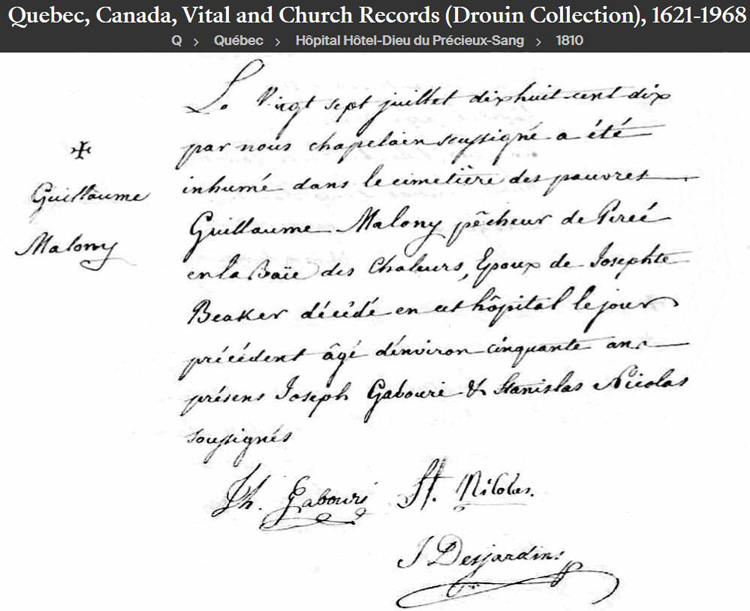 Quebec, Canada, Vital and Church Records (Drouin Collection), 1621-1968
Q > Québec > Hôpital Hôtel-Dieu du Précieux-Sang > 1810
Guillaume
Malony
Le Vingt sept juillet dixhuit cent dix
par nous chapelain soussigné a été
inhumé dans le cimetière des pauvres
Guillaume Malony pêcheur de Percé
en la Baïe des Chaleurs, Epoux de Josephte
Beaker décédé en cet hôpital le jour
précédent âgé d'environ cinquante ans
présens Joseph Gabouri & Stanislas Nicolas
soussignés
Jh. Gabouri St. Nicolas.
J Desjardins